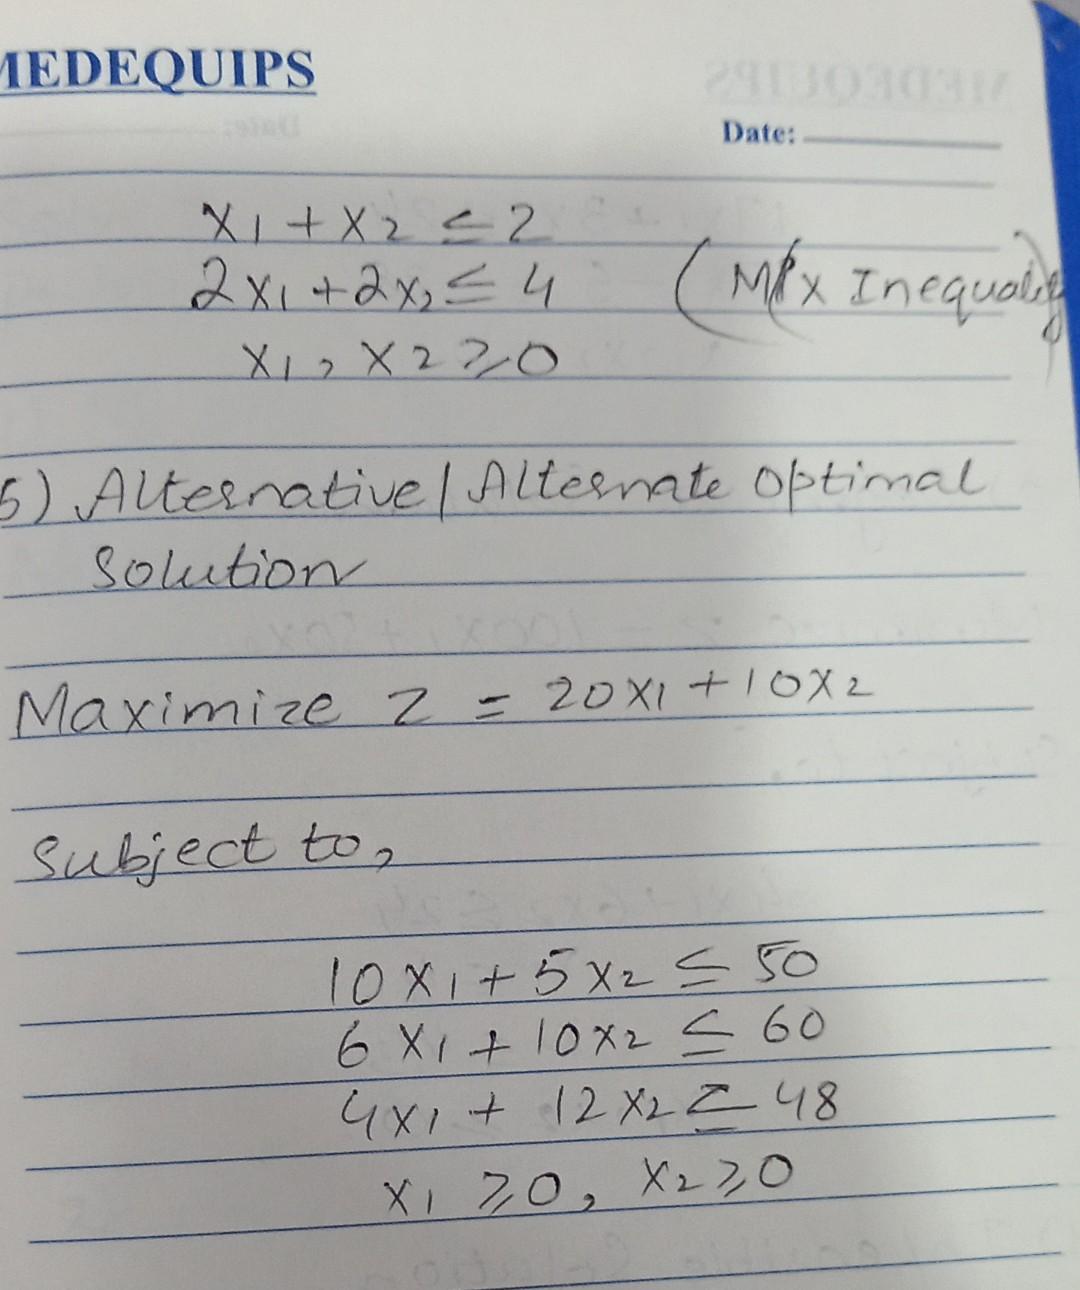 MEDEQUIPS
Date:
x1 + x2 ≤ 2
2x1 + 2x2 ≤ 4
(Mix Inequality)
x1, x2 ≥ 0
5) Alternative / Alternate Optimal
Solution
Maximize Z = 20x1 + 10x2
Subject to,
10x1 + 5x2 ≤ 50
6x1 + 10x2 ≤ 60
4x1 + 12x2 ≤ 48
x1 ≥ 0, x2 ≥ 0